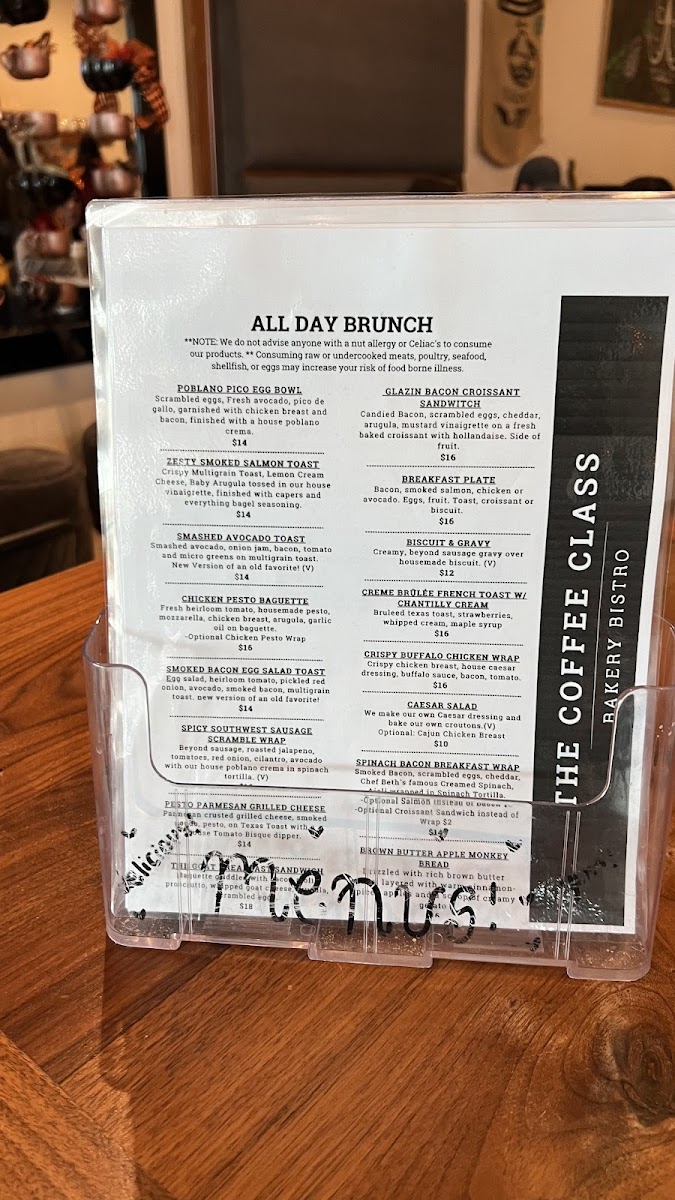 ALL DAY BRUNCH
**NOTE: We do not advise anyone with a nut allergy or Celiac's to consume
our products. ** Consuming raw or undercooked meats, poultry, seafood,
shellfish, or eggs may increase your risk of food borne illness.
POBLANO PICO EGG BOWL
Scrambled eggs, Fresh avocado, pico de
gallo, garnished with chicken breast and
bacon, finished with a house poblano
crema.
$14
ZESTY SMOKED SALMON TOAST
Crispy Multigrain Toast, Lemon Cream
Cheese, Baby Arugula tossed in our house
vinaigrette, finished with capers and
everything bagel seasoning.
$14
SMASHED AVOCADO TOAST
Smashed avocado, onion jam, bacon, tomato
and micro greens on multigrain toast.
New Version of an old favorite! (V)
$14
CHICKEN PESTO BAGUETTE
Fresh heirloom tomato, housemade pesto,
mozzarella, chicken breast, arugula, garlic
oil on baguette.
-Optional Chicken Pesto Wrap
$16
SMOKED BACON EGG SALAD TOAST
Egg salad, heirloom tomato, pickled red
onion, avocado, smoked bacon, multigrain
toast. new version of an old favorite!
$14
SPICY SOUTHWEST SAUSAGE
SCRAMBLE WRAP
Beyond sausage, roasted jalapeno,
tomatoes, red onion, cilantro, avocado
with our house poblano crema in spinach
tortilla. (V)
PESTO PARMESAN GRILLED CHEESE
Parmesan crusted grilled cheese, smoked
pesto, on Texas Toast with
Tomato Bisque dipper.
$14
THE GOAT BREAKFAST SANDWICH
Baguette griddled with
prosciutto, whipped goat cheese,
scrambled eggs
$18
GLAZIN BACON CROISSANT
SANDWITCH
Candied Bacon, scrambled eggs, cheddar,
arugula, mustard vinaigrette on a fresh
baked croissant with hollandaise. Side of
fruit.
$16
BREAKFAST PLATE
Bacon, smoked salmon, chicken or
avocado. Eggs, fruit. Toast, croissant or
biscuit.
$16
BISCUIT & GRAVY
Creamy, beyond sausage gravy over
housemade biscuit. (V)
$12
CREME BRÛLÉE FRENCH TOAST W/
CHANTILLY CREAM
Bruleed texas toast, strawberries,
whipped cream, maple syrup
$16
CRISPY BUFFALO CHICKEN WRAP
Crispy chicken breast, house caesar
dressing, buffalo sauce, bacon, tomato.
$16
CAESAR SALAD
We make our own Caesar dressing and
bake our own croutons.(V)
Optional: Cajun Chicken Breast
$10
SPINACH BACON BREAKFAST WRAP
Smoked Bacon, scrambled eggs, cheddar,
Chef Beth's famous Creamed Spinach,
Aioli wrapped in Spinach Tortilla.
-Optional Salmon instead of Bacon
-Optional Croissant Sandwich instead of
Wrap $2
$14
BROWN BUTTER APPLE MONKEY
BREAD
Drizzled with rich brown butter
layered with warm cinnamon-
apples and a scoop of creamy
gelato
THE COFFEE CLASS
BAKERY BISTRO
Menus!